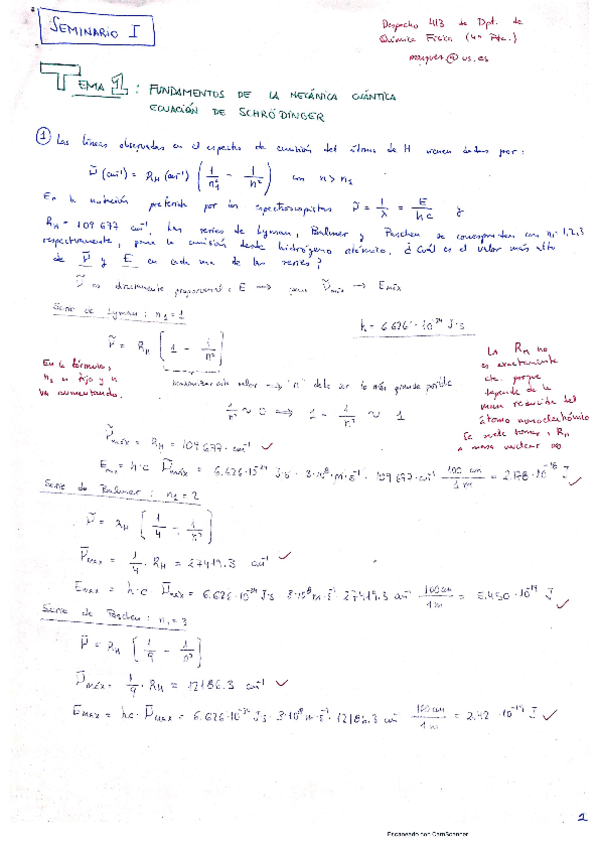 SEMINARIO I
Despacho 413 de Dpt. de
Química Física (4ª Pta.)
marquez@us.es
TEMA 1: FUNDAMENTOS DE LA MECÁNICA CUÁNTICA
ECUACIÓN DE SCHRÖDINGER
① Las líneas observadas en el espectro de emisión del átomo de H vienen dadas por:
ν̃ (cm⁻¹) = R_H (cm⁻¹) (1/n₁² - 1/n²) con n > n₁
En la notación preferida por los espectroscopistas ν̃ = 1/λ = E/hc y
R_H = 109 677 cm⁻¹. Las series de Lyman, Balmer y Paschen se corresponden con n₁=1,2,3
respectivamente, para la emisión desde hidrógeno atómico. ¿Cuál es el valor más alto
de ν̃ y E en cada una de las series?
ν̃ es directamente proporcional a E → para ν̃máx → Emáx
Serie de Lyman: n₁ = 1
h = 6.626·10⁻³⁴ J·s
ν̃ = R_H [1 - 1/n²]
maximizar este valor → "n" debe ser lo más grande posible
En la fórmula,
n₁ es fijo y n
va aumentando.
La R_H no
es exactamente
cte. porque
depende de la
masa reducida del
átomo monoelectrónico
Se suele tomar, R_H
a masa nuclear ∞
1/n² ≈ 0 ⟹ 1 - 1/n² ≈ 1
ν̃máx = R_H = 109 677 cm⁻¹ ✓
Emáx = h·c·ν̃máx = 6.626·10⁻³⁴ J·s · 3·10⁸ m·s⁻¹ · 109 677 cm⁻¹ 100 cm/1 m = 2.178·10⁻¹⁸ J ✓
Serie de Balmer: n₁ = 2
ν̃ = R_H [1/4 - 1/n²]
ν̃máx = 1/4 · R_H = 27419.3 cm⁻¹ ✓
Emáx = h·c ν̃máx = 6.626·10⁻³⁴ J·s 3·10⁸ m·s⁻¹ 27419.3 cm⁻¹ 100 cm/1 m = 5.450·10⁻¹⁹ J ✓
Serie de Paschen: n₁ = 3
ν̃ = R_H [1/9 - 1/n²]
ν̃máx = 1/9 · R_H = 12186.3 cm⁻¹ ✓
Emáx = hc·ν̃máx = 6.626·10⁻³⁴ J·s · 3·10⁸ m·s⁻¹ · 12186.3 cm⁻¹ 100 cm/1 m = 2.42·10⁻¹⁹ J ✓
1
Escaneado con CamScanner